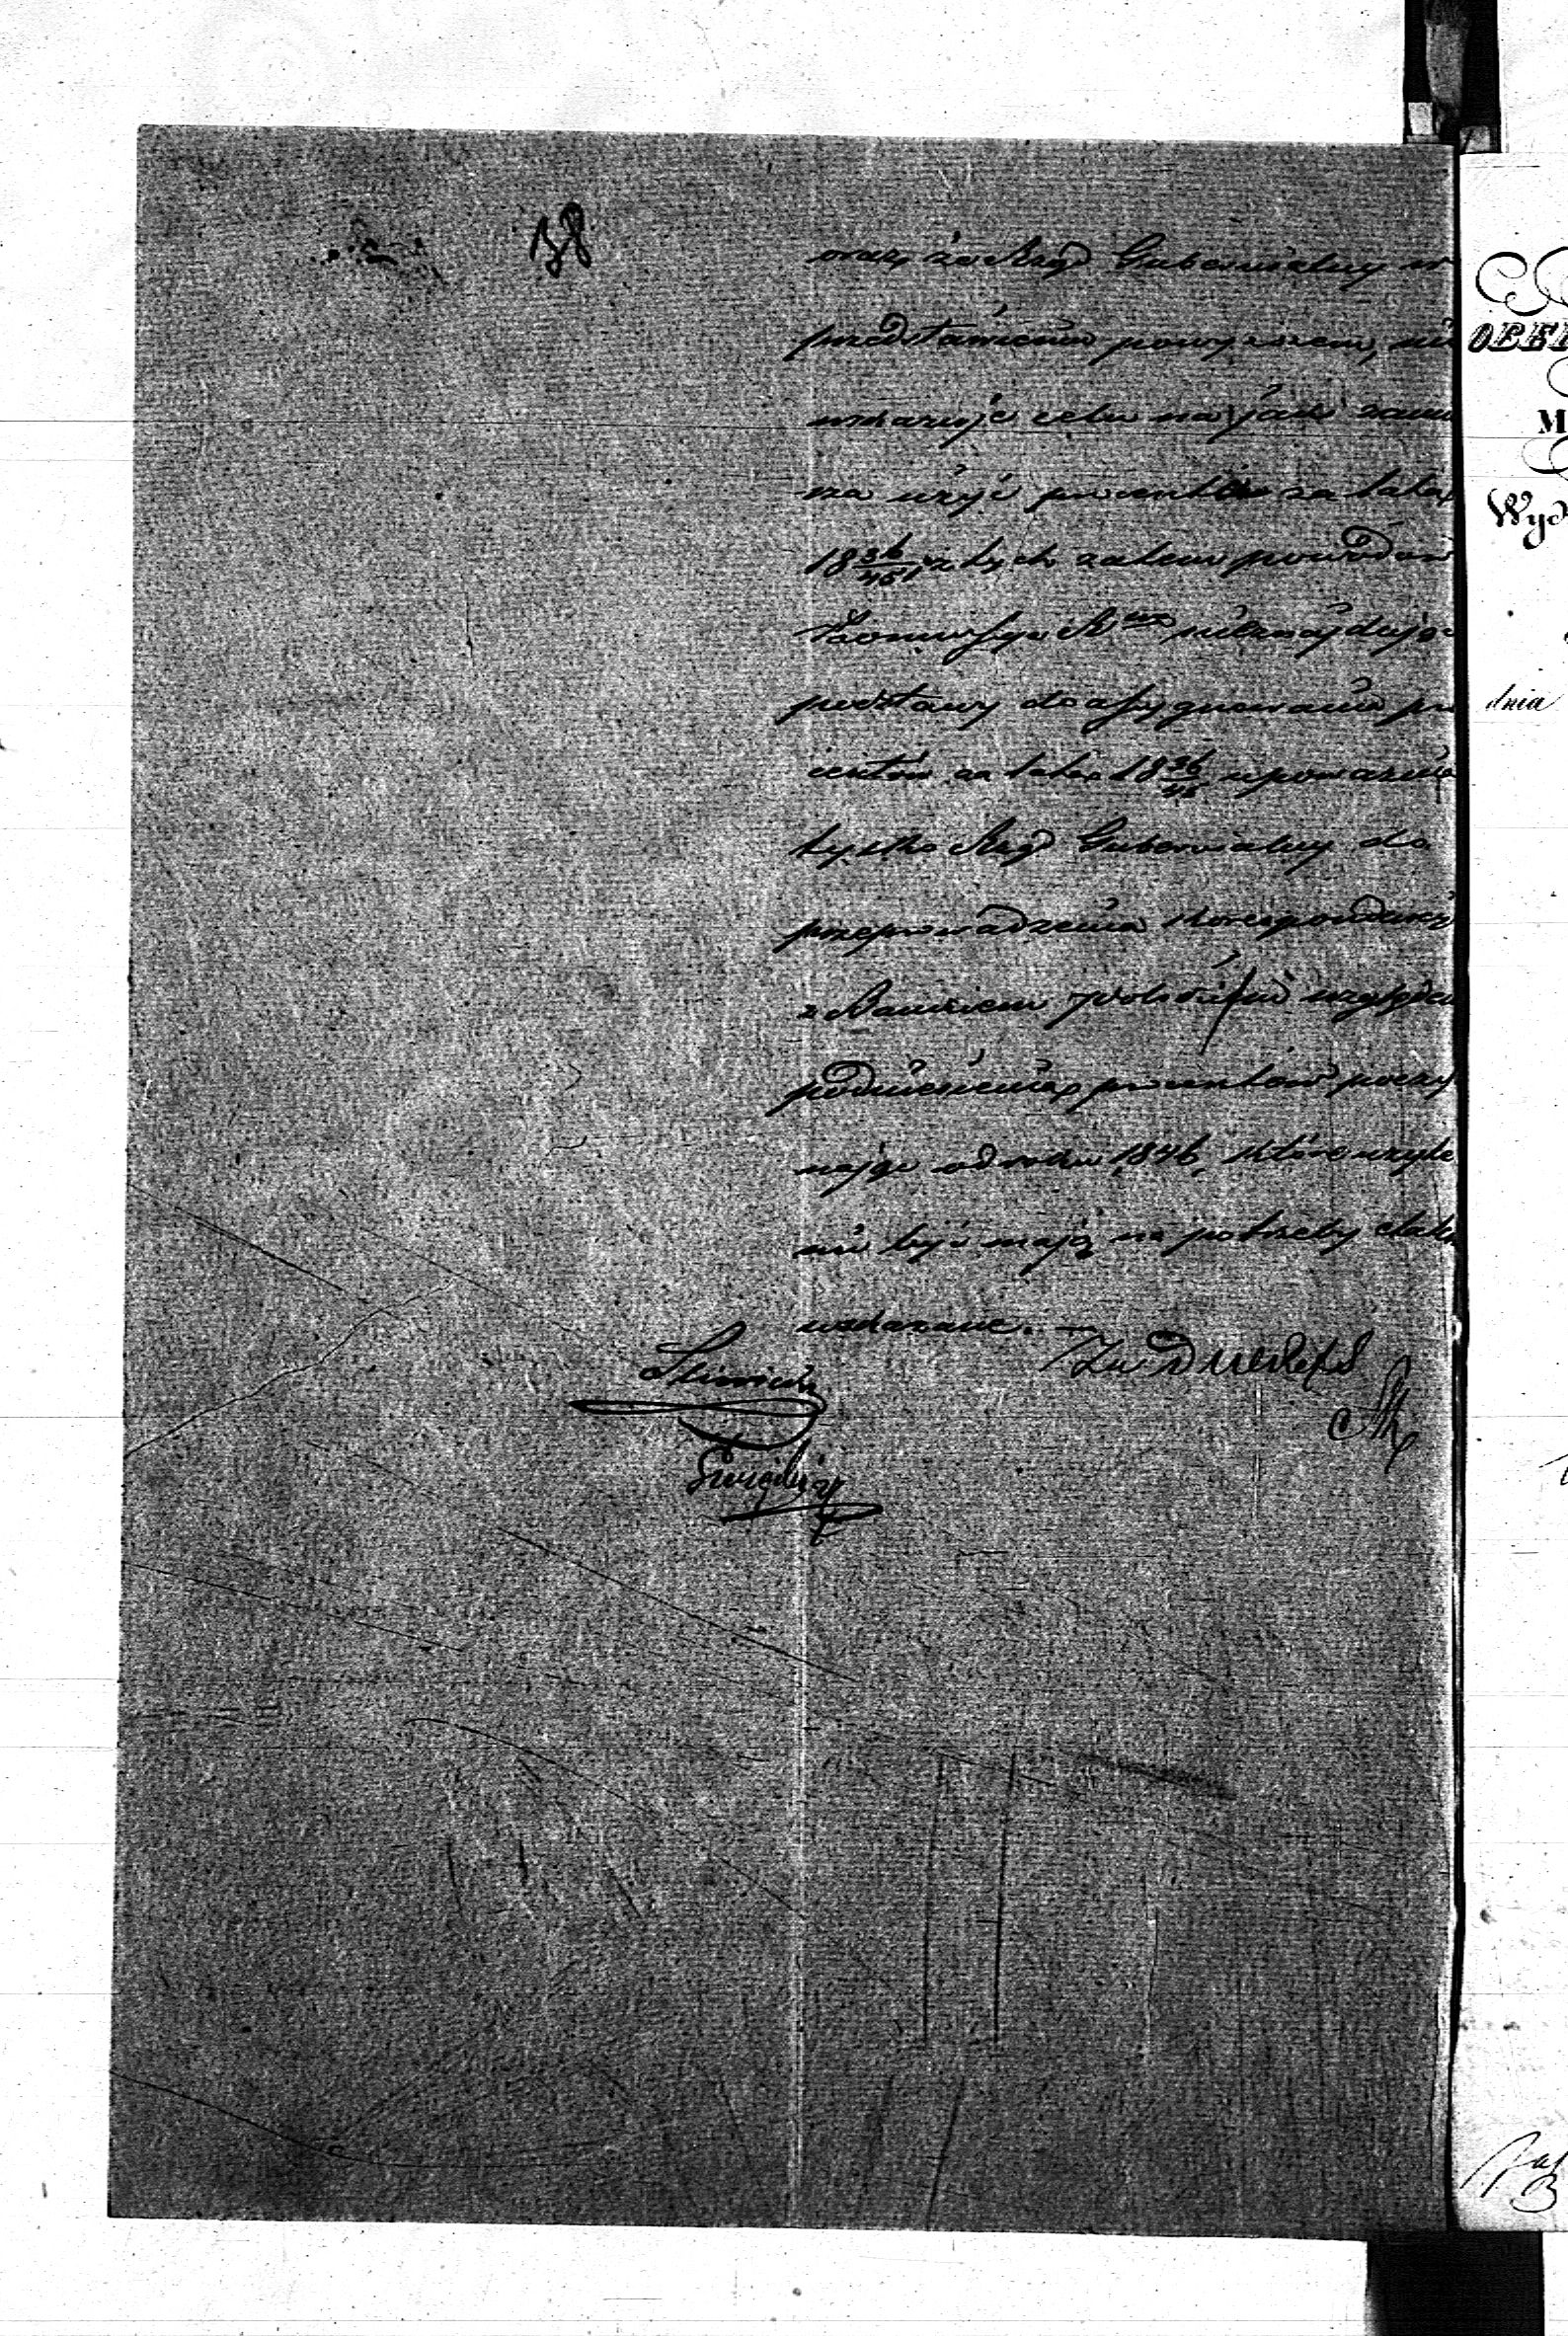 38
oraz że Rząd Gubernialny w
przedstawieniu powyższem, nie
wskazuje celu na jaki zami
za użyć procentów za lata
18 36/45, z tych zatem powodów
Kommissya R. nieznajdując
podstawy do assygnowania pro
centów za lata 18 36/45 upoważnia
tylko Rząd Gubernialny do
przeprowadzenia korespondencyi
z Bankiem Polskim względem
podniesienia procentów poczy
nając od roku 1846, które użyte
mi być mają na potrzeby
wskazane.
OBER
M
Wyd
dnia